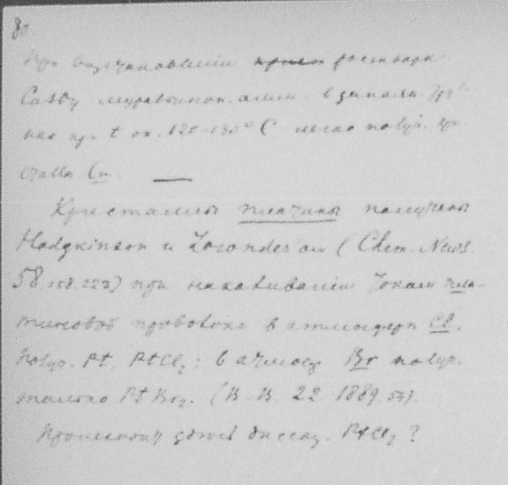 80
При возстановленіи раствора
CuSO4 муравьинок. амм. в запаян. труб-
ках пр. t ок. 120-130° C легко получ. кри
сталлы Cu.
Кристаллы платины получены
Hodgkinson и Lowndes'ом (Chem. News
58. 158. 223) при накаливаніи токам пла-
тиновой проволоки в атмосферѣ Cl.
Получ. Pt, PtCl2; в атмосф. Br получ.
только PtBr2. (B. B. 22 1889. 53).
диссоц. PtCl2?